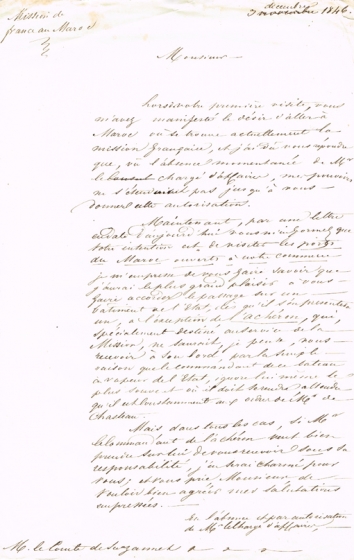 Mission de
france au Maroc
décembre
3 novembre 1846.
Monsieur
Lors de votre première visite, vous
m'avez manifesté le désir d'aller à
Maroc où se trouve actuellement la
mission française, et j'ai dû vous répondre
que, vû l'absence momentanée de Mr
le Chargé d'affaires, mes pouvoirs
ne s'étendaient pas jusqu'à vous
donner cette autorisation.
Maintenant, par une lettre
d'aujourd'hui vous m'informez que
votre intention est de visiter les ports
du Maroc ouverts à votre commerce
je m'empresse de vous faire savoir que
j'aurai le plus grand plaisir à vous
faire accorder le passage sur un
bâtiment de l'Etat, dès qu'il s'en présentera
un, à l'exception de l'achéron, qui,
spécialement destiné au service de la
Mission, ne saurait, je pense, vous
recevoir à son bord, par la simple
raison que le commandant de ce bateau
à vapeur de l'Etat, ignore lui même le
plus souvent où il doit se rendre, attendu
qu'il est constamment aux ordres de Mr de
Chasteau.
Mais dans tous les cas, si Mr
le Commandant de l'achéron veut bien
prendre sur lui de vous recevoir sous sa
responsabilité, j'en serai charmé pour
vous, et vous prie Monsieur de
vouloir bien agréer mes salutations
empressées.
En l'absence et par autorisation
de Mr le chargé d'affaires,
M. le Comte de